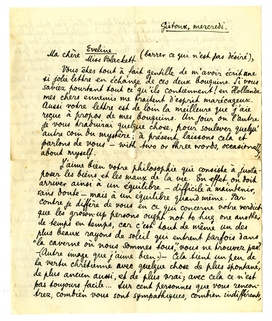 Gistoux, mercredi.
Eveline
Ma chère Miss Blackett (barrer ce qui n'est pas désiré),
Vous êtes tout à fait gentille de m'avoir écrit une
si jolie lettre en échange de ces deux bouquins. Si vous
saviez pourtant tout ce qu'ils contiennent; en Hollande
mes chers ennemis me traitent d'esprit marécageux.
Aussi votre lettre est de loin la meilleure que j'aie
reçue à propos de mes bouquins. Un jour ou l'autre
je vous traduirai quelque chose, pour soulever quelqu'
autre coin du mystère; à présent laissons cela et
parlons de vous — with two or three words, occasionally
about myself.
J'aime bien votre philosophie qui consiste à juste
les biens et les maux de la vie. En effet, on doit
arriver ainsi à un équilibre — difficile à maintenir,
sans doute — mais à un équilibre quand même. Par
contre je diffère de vous en ce qui concerne votre verdict
que les grown-up persons ought not to hug one another
de temps en temps, car c'est tout de même un des
plus beaux rayons de soleil qui entrent parfois dans
"la caverne où nous sommes tous", vous ne trouvez pas?
(Autre image que j'aime bien) — Cela tient un peu de
la vertu chrétienne avec quelque chose de plus spontané,
de plus ancien aussi, et de plus vrai; avec cela ce n'est
pas toujours facile... Sur cent personnes que vous rencon-
trez, combien vous sont sympathiques, combien indifférents,